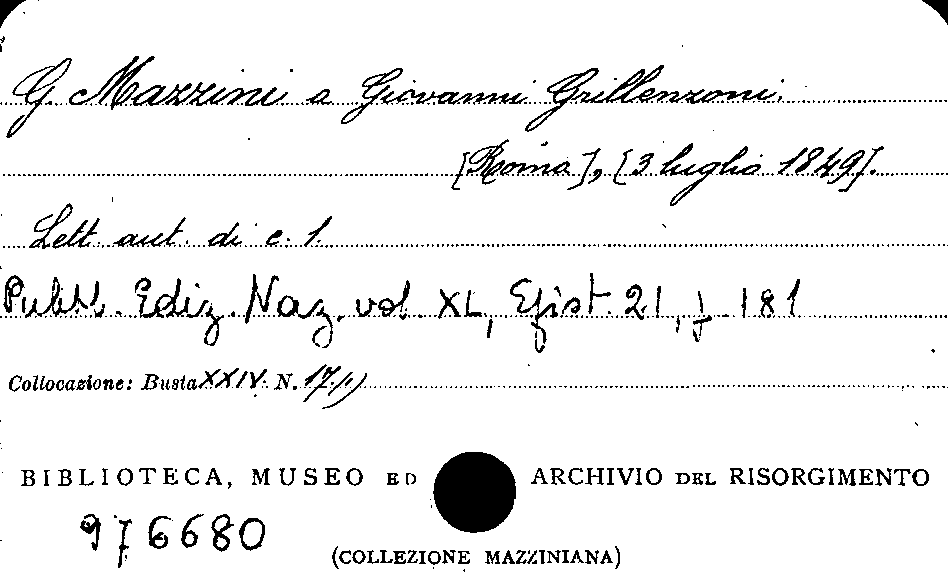 G. Mazzini a Giovanni Grillenzoni.
[Roma], [3 luglio 1849].
Lett. aut. di c. 1.
Pubbl. Ediz. Naz. vol. XL, Epist. 21, p. 181
Collocazione: Busta XXIV N. 17/1)
BIBLIOTECA, MUSEO ED ARCHIVIO DEL RISORGIMENTO
976680
(COLLEZIONE MAZZINIANA)